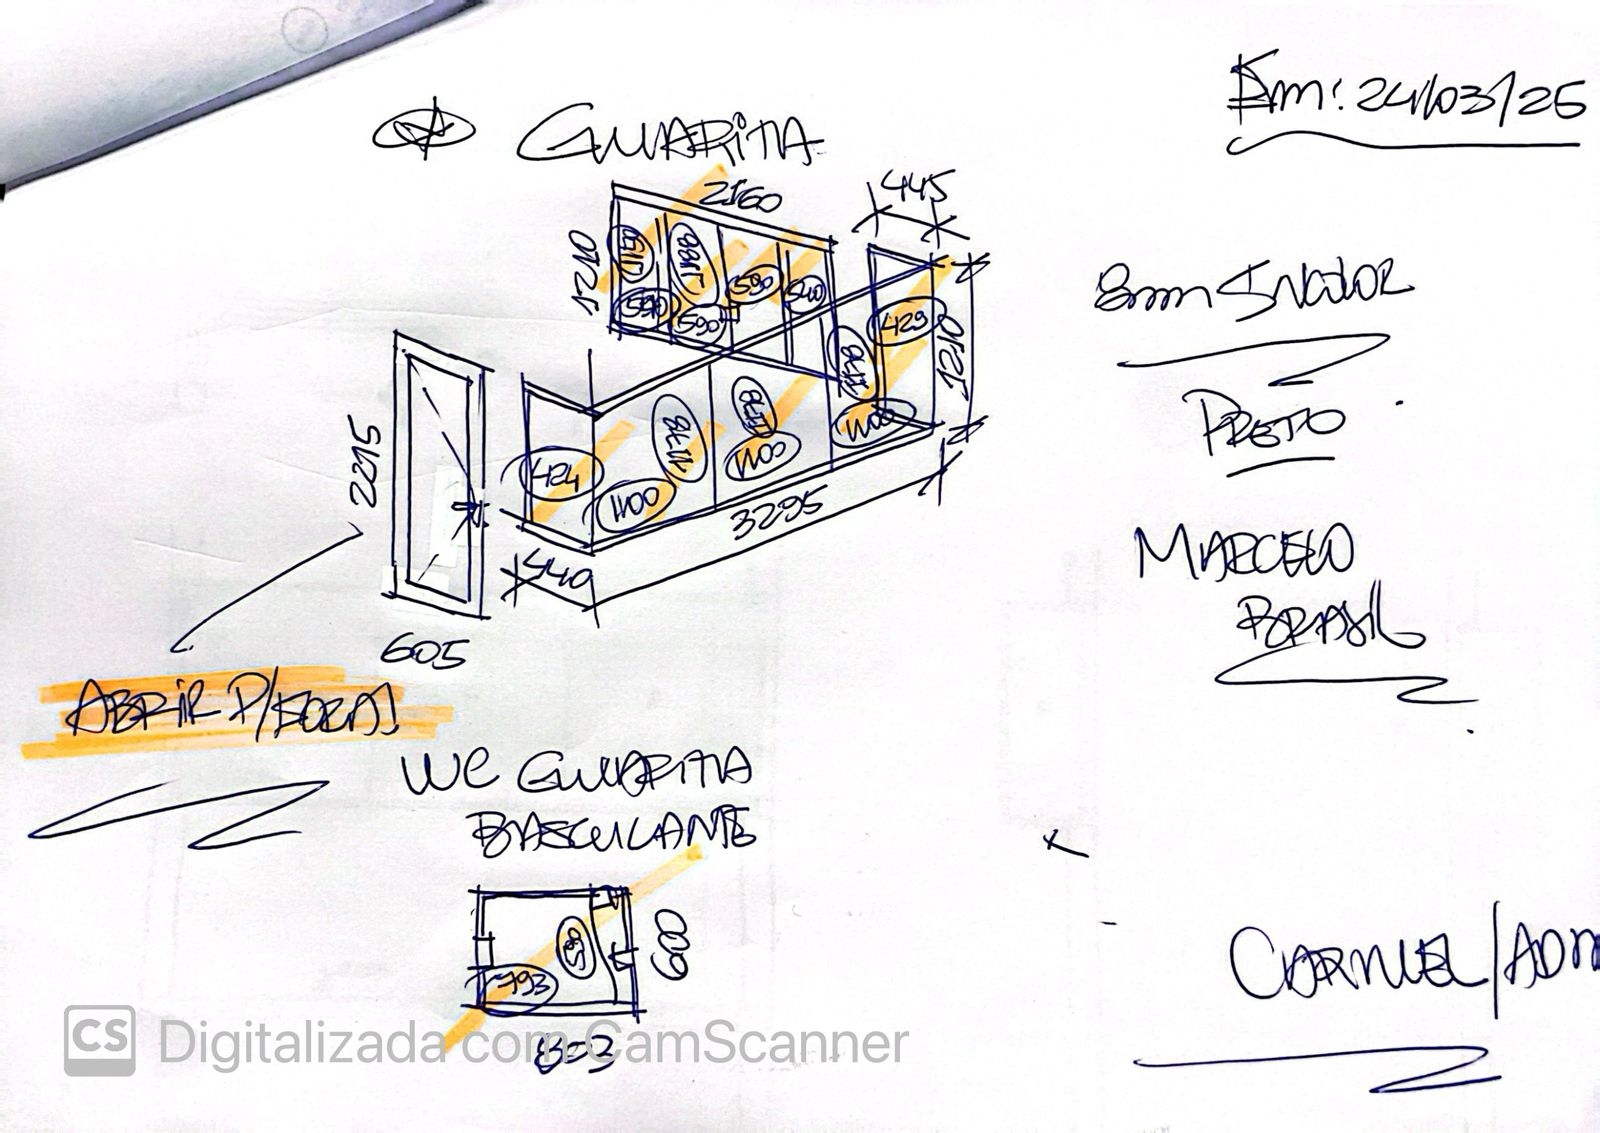 Em: 24/03/25
GUARITA
2160
445
1210
590
590
590
540
429
1210
8mm INCOLOR
PRETO
1178
1178
1178
1100
1100
1100
424
2215
3295
440
605
MARCELO
BRASIL
ABRIR P/FORA!
WC GUARITA
BASCULANTE
600
793
803
CARMUEL/ADM
CS Digitalizada com CamScanner